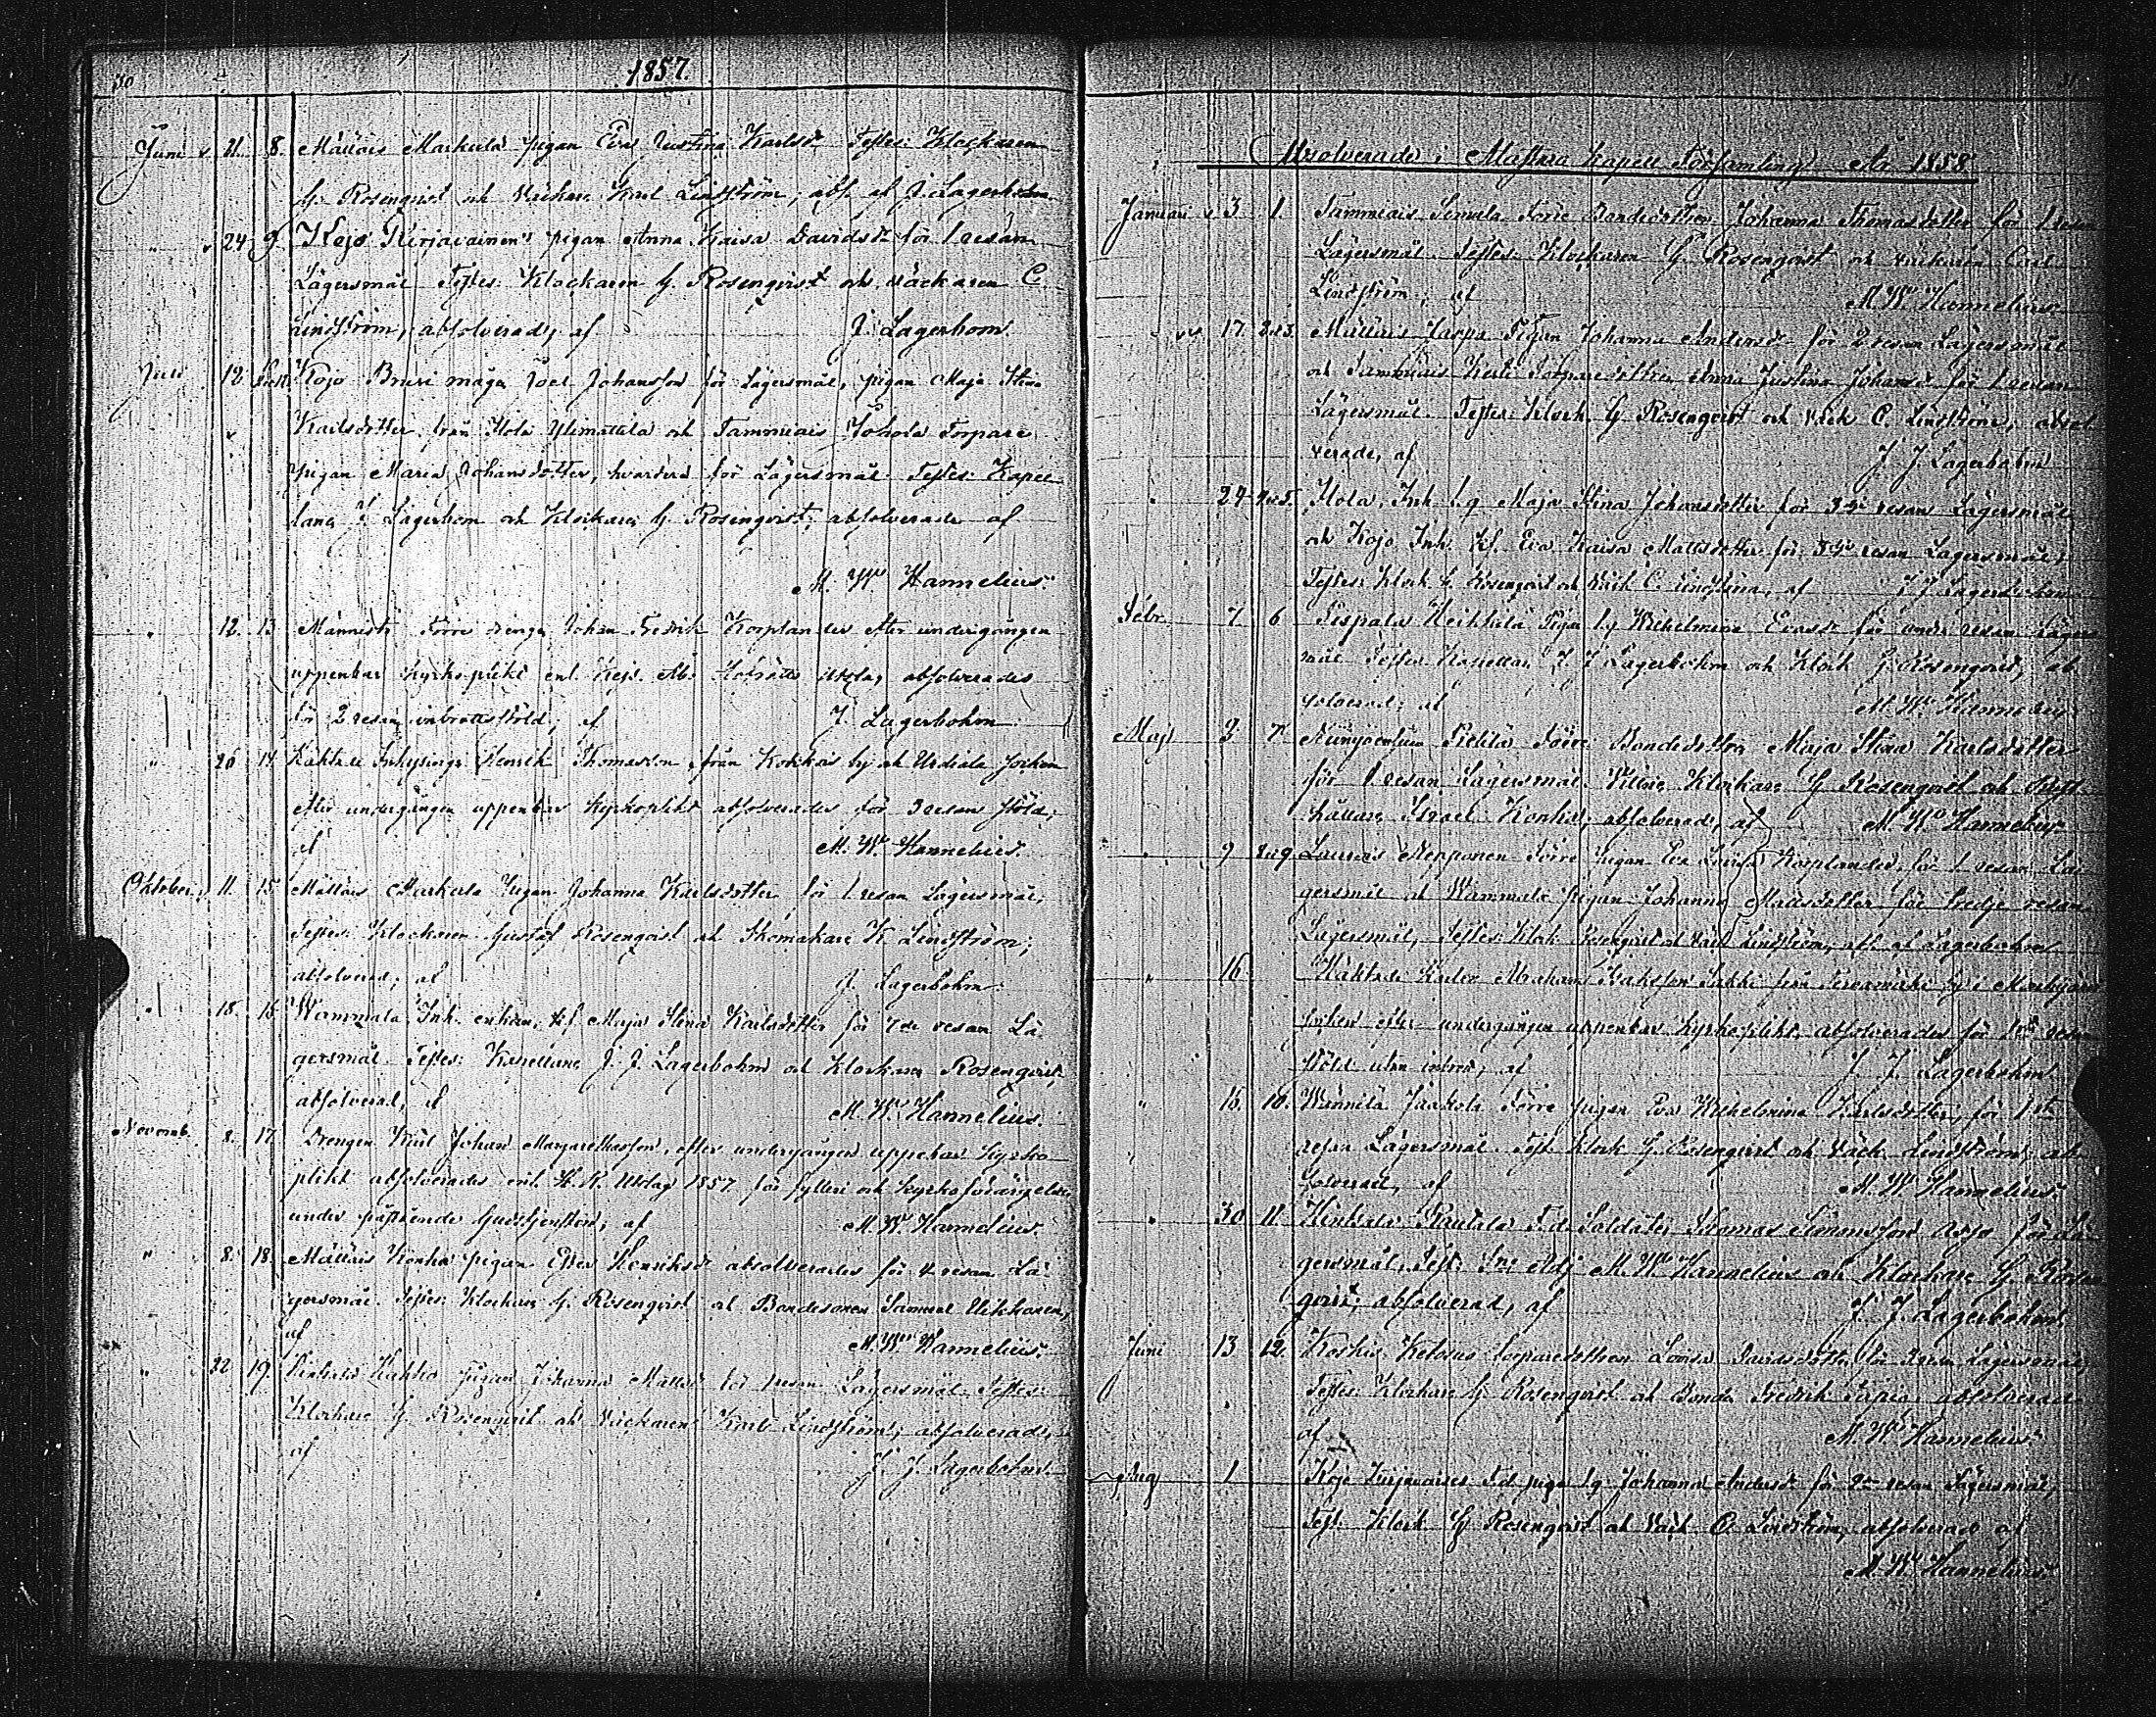 30
1857.
Juni 21. 8. Mälläis Markula pigan Eva Justina Karlsd. Testes: Klockaren
G. Rosenqvist och Väckare Karl Lindström; abs. af J. Lagerbohm
" 24 9. Kojo Kirjavainen's pigan Anna Kaisa Davidsd. för 1 resan
Lägersmål Testes: Klockaren G. Rosenqvist och Väckaren C.
Lindström, absolverad, af J. Lagerbom.
Juli 12 Kojo Bruri måga Joel Johansson för Lägersmål, pigan Maja Stina
Karlsdotter från Hola Ylimattila och Tammiais Torpare
pigan Maria Johansdotter, hvardera för Lägersmål. Testes: Kapel-
lane J. Lagerbom och Klockare G. Rosenqvist, absolverade af
M. W. Hannelius.
" 12. 13 Männistö Förre drenge Johan Fredrik Korplander efter undergången
uppenbar kyrkoplikt enl. Kejs. Åbo Hofrätts utslag absolverades
för 2 resan inbrottsstöld, af J. Lagerbohm
" 26 14. Häktade Inhysinge Henrik Thomasson från by och Urdiala socken
efter undergången uppenbar kyrkoplikt absolverades för 3 resan stöld,
af M. W. Hannelius.
Oktober 11. 15 Mälläis Markula Pigan Johanna Karlsdotter för 1 resan Lägersmål;
Testes: Klockaren Gustaf Rosenqvist och Skomakare K. Lindström;
absolverad, af J. Lagerbohm.
" 18. 16 Wammala Inh. enkan, Maja Stina Karlsdotter för 7de resan Lä-
gersmål. Testes: Kapellane J. J. Lagerbohm och Klockare Rosenqvist,
absolverad, af M. W. Hannelius.
Novemb. 8. 17 Drengen Karl Johan Margarethasson, efter undergången uppenbar kyrko-
plikt absolverades enl. H. R. Utslag 1857 för fylleri och
under påstående Gudstjensten; af M. W. Hannelius.
" 8. 18. Mälläis Konha pigan Ester Henriksd. absolverades för 4 resan Lä-
gersmål. Testes: Klockare G. Rosenqvist och Bondesonen Samuel
af M. W. Hannelius.
" 22 19. Kahko Pigan Johanna Mattsd. för 1 resan Lägersmål. Testes:
Klockare G. Rosenqvist och Väckaren Karl Lindström, absolverad,
af J. J. Lagerbohm.
31
Absolverade i Kapell Församling År 1858.
Januari 3 1. Tammiais Simula Förre Bondedotter Johanna Thomasdotter för 1 resan
Lägersmål. Testes: Klockaren G. Rosenqvist och Väckaren Carl
Lindström; af M. W. Hannelius.
" 17. 2 o 3. Mälläis Jaspa Pigan Johanna Andersd. för 2 resan Lägersmål
och Tammiais Torparedottren Anna Justina Johansd. för 1 resan
Lägersmål. Testes: Klock. G. Rosenqvist och Väck. C. Lindström, absol-
verade, af J. J. Lagerbohm
" 24 4 o 5. Hola, Inh. Maja Stina Johansdotter för 3dje resan Lägersmål
och Kojo Inh. Eva Kaisa Mattsdotter för 3dje resan Lägersmål,
Testes: Klock. G. Rosenqvist och Väck. C. Lindström, af J. J. Lagerbohm
Febr. 7 6 Heikkilä Pigan Wilhelmina Evasd. för andra resan Lägers-
mål Testes: Kapellan J. J. Lagerbohm och Klock. G. Rosenqvist, ab-
solverad; af M. W. Hannelius
Maj 2. 7. Förre Bondedottren Maja Stina Karlsdotter
för 1 resan Lägersmål. Klockare G. Rosenqvist och
hållare Israel Konka, absolverad, af M. W. Hannelius
" 9 8 o 9. Launois Nepponen Förre Pigan Eva Lovisa Korplander för 1 resan Lä-
gersmål och Wammala pigan Johanna Mattsdotter för tredje resan
Lägersmål, Testes: Klock. Rosenqvist och Väck. Lindström, abs. af Lagerbohm
" 16 Häktade Karlen Abraham Isaksson från by i
socken efter undergången uppenbar kyrkoplikt, absolverades för resan
stöld utan inbrott, af J. J. Lagerbohm
" 16. 10. Wännilä Jaakola Förre pigan Eva Wilhelmina Karlsdotter, för 1sta
resan Lägersmål. Test. Klock. G. Rosenqvist och Väck. Lindström; ab-
solverad, af M. W. Hannelius.
" 30 11. Rautala F.d. Soldaten Thomas Simonsson för Lä-
gersmål. Test. Adj. M. W. Hannelius och Klockare G. Rosen-
qvist, absolverad, af J. J. Lagerbohm
Juni 13 12. Koskis Ketosus torparedottren Lovisa Davidsdotter för resan Lägersmål,
Testes Klockare G. Rosenqvist och Bonde Fredrik absolverad
af M. W. Hannelius.
Aug. 1 Kojo F.d. piga Johanna Andersd. för 2 resan Lägersmål,
Test. Klock. G. Rosenqvist och Väck. C. Lindström, absolverad af
M. W. Hannelius.